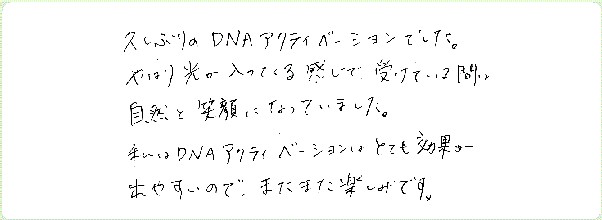 久しぶりのDNAアクティベーションでした。
やはり光が入ってくる感じで、受けている間は
自然と笑顔になっていました。
私にはDNAアクティベーションはとても効果が
出やすいので、まだまだ楽しみです。